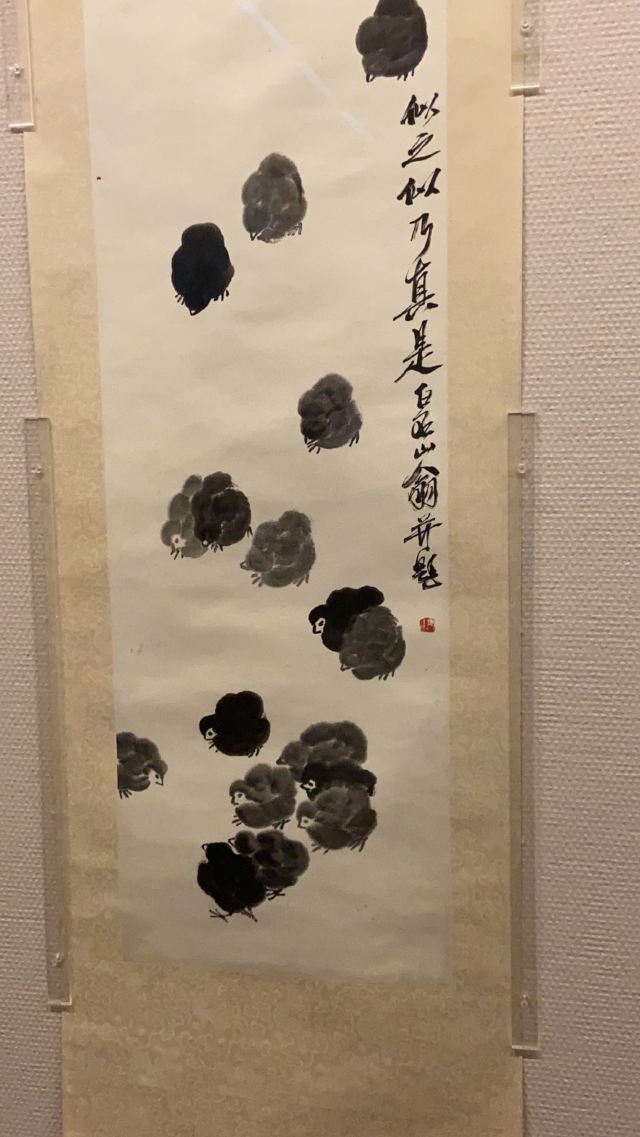 似之似乃真是白石山翁并題